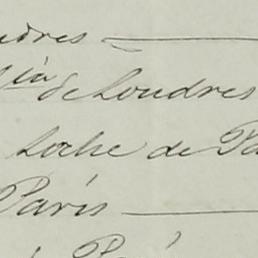 ndres
ia de Londres
Loche de Pa
París